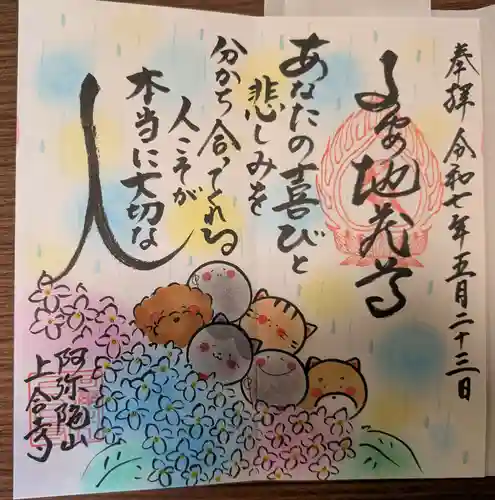 奉拝 令和七年五月二十三日
子安地蔵尊
あなたの喜びと
悲しみを
分かち合ってくれる
人こそが
本当に大切な
人
阿弥陀山
上合寺